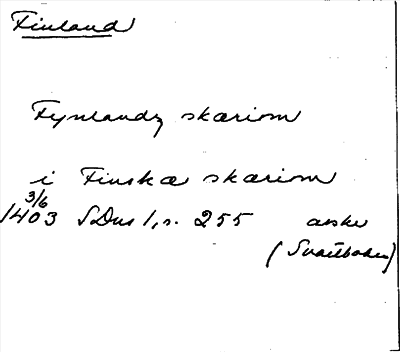 Finland
Fynlandz skæriom
i Finska skæriom
3/6
1403 SDns 1, s. 255 avskr
(Svartboken)